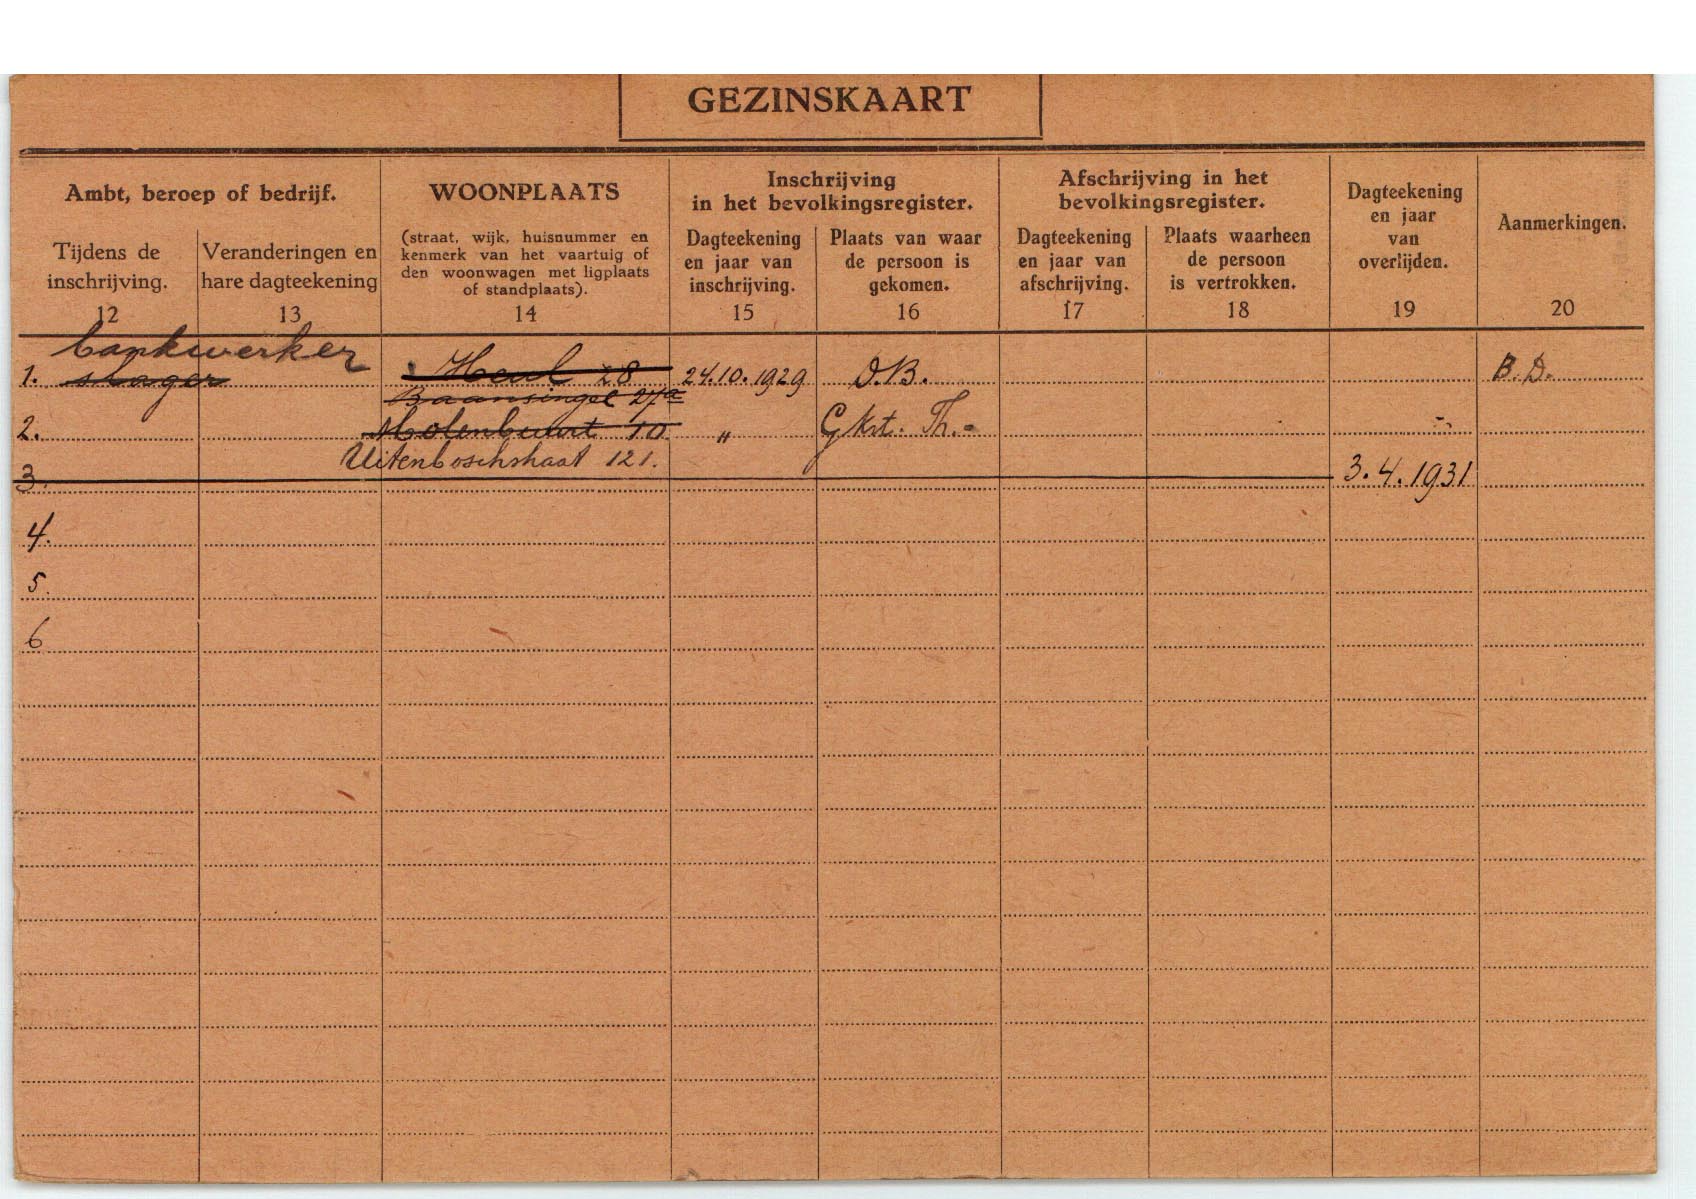 GEZINSKAART
Ambt, beroep of bedrijf.
Tijdens de inschrijving.
12
Veranderingen en hare dagteekening
13
WOONPLAATS
(straat, wijk, huisnummer en
kenmerk van het vaartuig of
den woonwagen met ligplaats
of standplaats).
14
Inschrijving
in het bevolkingsregister.
Dagteekening
en jaar van
inschrijving.
15
Plaats van waar
de persoon is
gekomen.
16
Afschrijving in het
bevolkingsregister.
Dagteekening
en jaar van
afschrijving.
17
Plaats waarheen
de persoon
is vertrokken.
18
Dagteekening
en jaar
van
overlijden.
19
Aanmerkingen.
20
bankwerker
1. slager Heul 28 24.10.1929 O.B. B.D.
Baansingel 27a
2. Molenbuurt 10 " Gkst. Th.-
Uitenboschstraat 121.
3. 3.4.1931
4.
5.
6